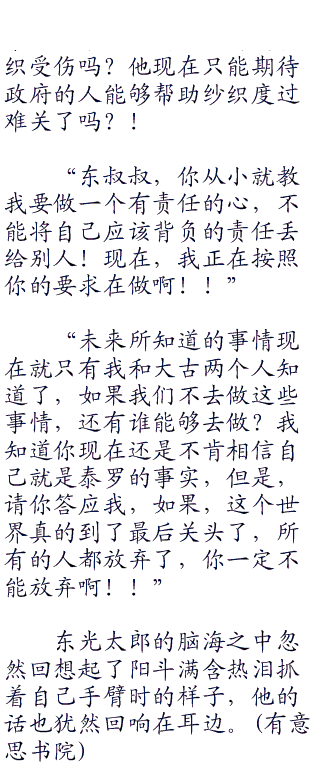 织受伤吗？他现在只能期待
政府的人能够帮助纱织度过
难关了吗？！
“东叔叔，你从小就教
我要做一个有责任的心，不
能将自己应该背负的责任丢
给别人！现在，我正在按照
你的要求在做啊！！”
“未来所知道的事情现
在就只有我和大古两个人知
道了，如果我们不去做这些
事情，还有谁能够去做？我
知道你现在还是不肯相信自
己就是泰罗的事实，但是，
请你答应我，如果，这个世
界真的到了最后关头了，所
有的人都放弃了，你一定不
能放弃啊！！”
东光太郎的脑海之中忽
然回想起了阳斗满含热泪抓
着自己手臂时的样子，他的
话也犹然回响在耳边。(有意
思书院)